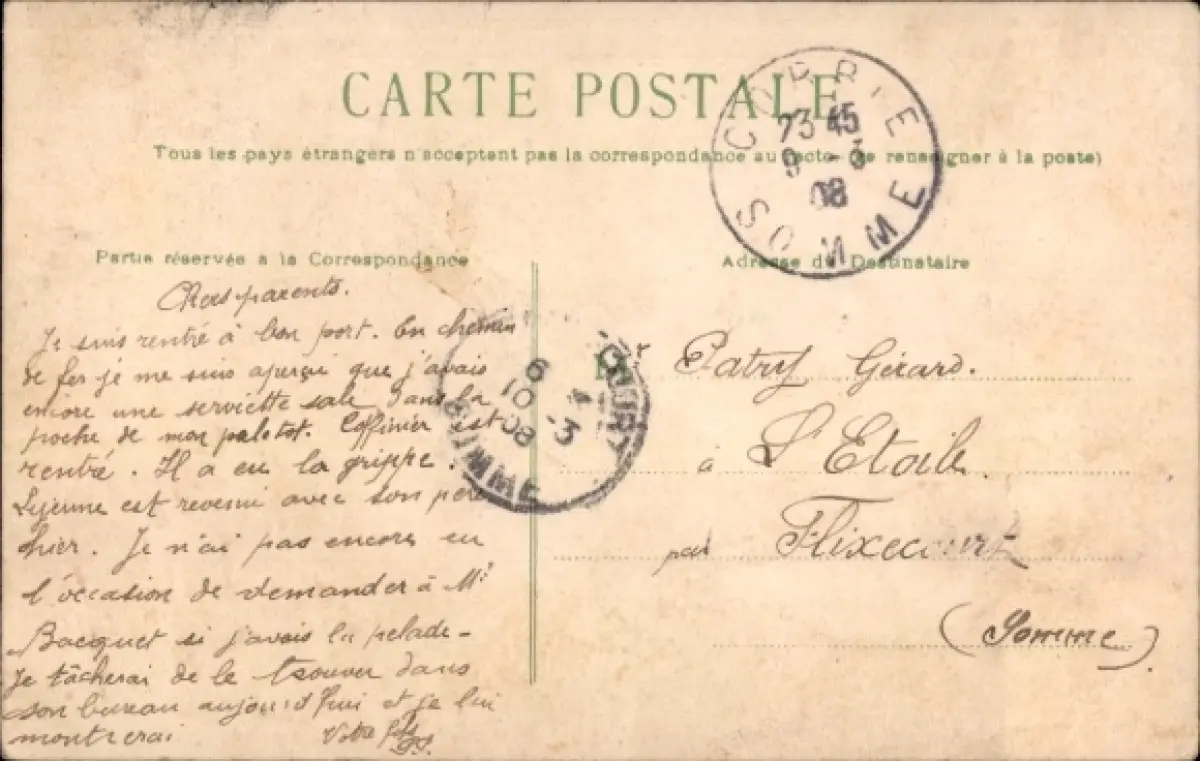 CARTE POSTALE
Tous les pays étrangers n'acceptent pas la correspondance au recto (se renseigner à la poste)
CORBIE
23 45
9 -3
08
SOMME
Partie réservée a la Correspondance
Adresse du Destinataire
Chers parents.
Je suis rentré à bon port. En chemin
de fer je me suis aperçu que j'avais
encore une serviette sale dans la
poche de mon paletot. est
rentré. Il a eu la grippe.
Lejeune est revenu avec son père
hier. Je n'ai pas encore eu
l'occasion de demander à Mr
Bacquet si j'avais la pelade-
Je tâcherai de le trouver dans
son bureau aujourd'hui et je lui
montrerai
Votre fils
6
10 -3
08
SOMME
Mr Patry Gérard.
à L'Etoile.
par Flixecourt
(Somme)